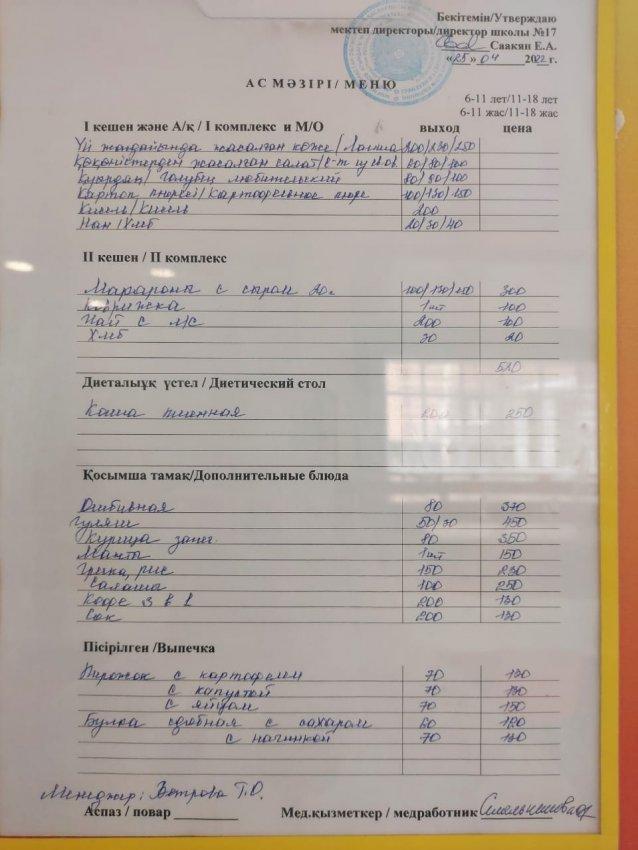 Бекітемін/Утверждаю
мектеп директоры/директор школы №17
Саакян Е.А.
«25» 04 2022 г.
АС МӘЗІРІ/ МЕНЮ
6-11 лет/11-18 лет
6-11 жас/11-18 жас
І кешен және А/қ / І комплекс и М/О выход цена
Үй жағдайында жасалған көже / Лапша 200/230/250
Көкөністерден жасалған салат/ 60/80/100
Қуырдақ/ Голубец любительский 80/90/100
Картоп пюресі/Картофельное пюре 100/130/150
Кисель/Кисель 200
Нан/Хлеб 20/30/40
ІІ кешен / ІІ комплекс
Макароны с сыром 20г 100/130/150 300
Коврижка 1шт 100
Чай с м/с 200 100
Хлеб 30 20
520
Диеталық үстел / Диетический стол
Каша пшенная 200 250
Қосымша тамақ/Дополнительные блюда
Отбивная 80 370
Гуляш 50/30 450
Курица запег. 80 350
Манты 1шт 150
Гречка, рис 150 230
Салаты 100 250
Кофе 3 в 1 200 130
Сок 200 130
Пісірілген /Выпечка
Пирожок с картофелем 70 130
с капустой 70 130
с яйцом 70 150
Булка сдобная с сахаром 60 120
с начинкой 70 130
Менеджер: Ветрова Т.О.
Аспаз / повар Мед.қызметкер / медработник